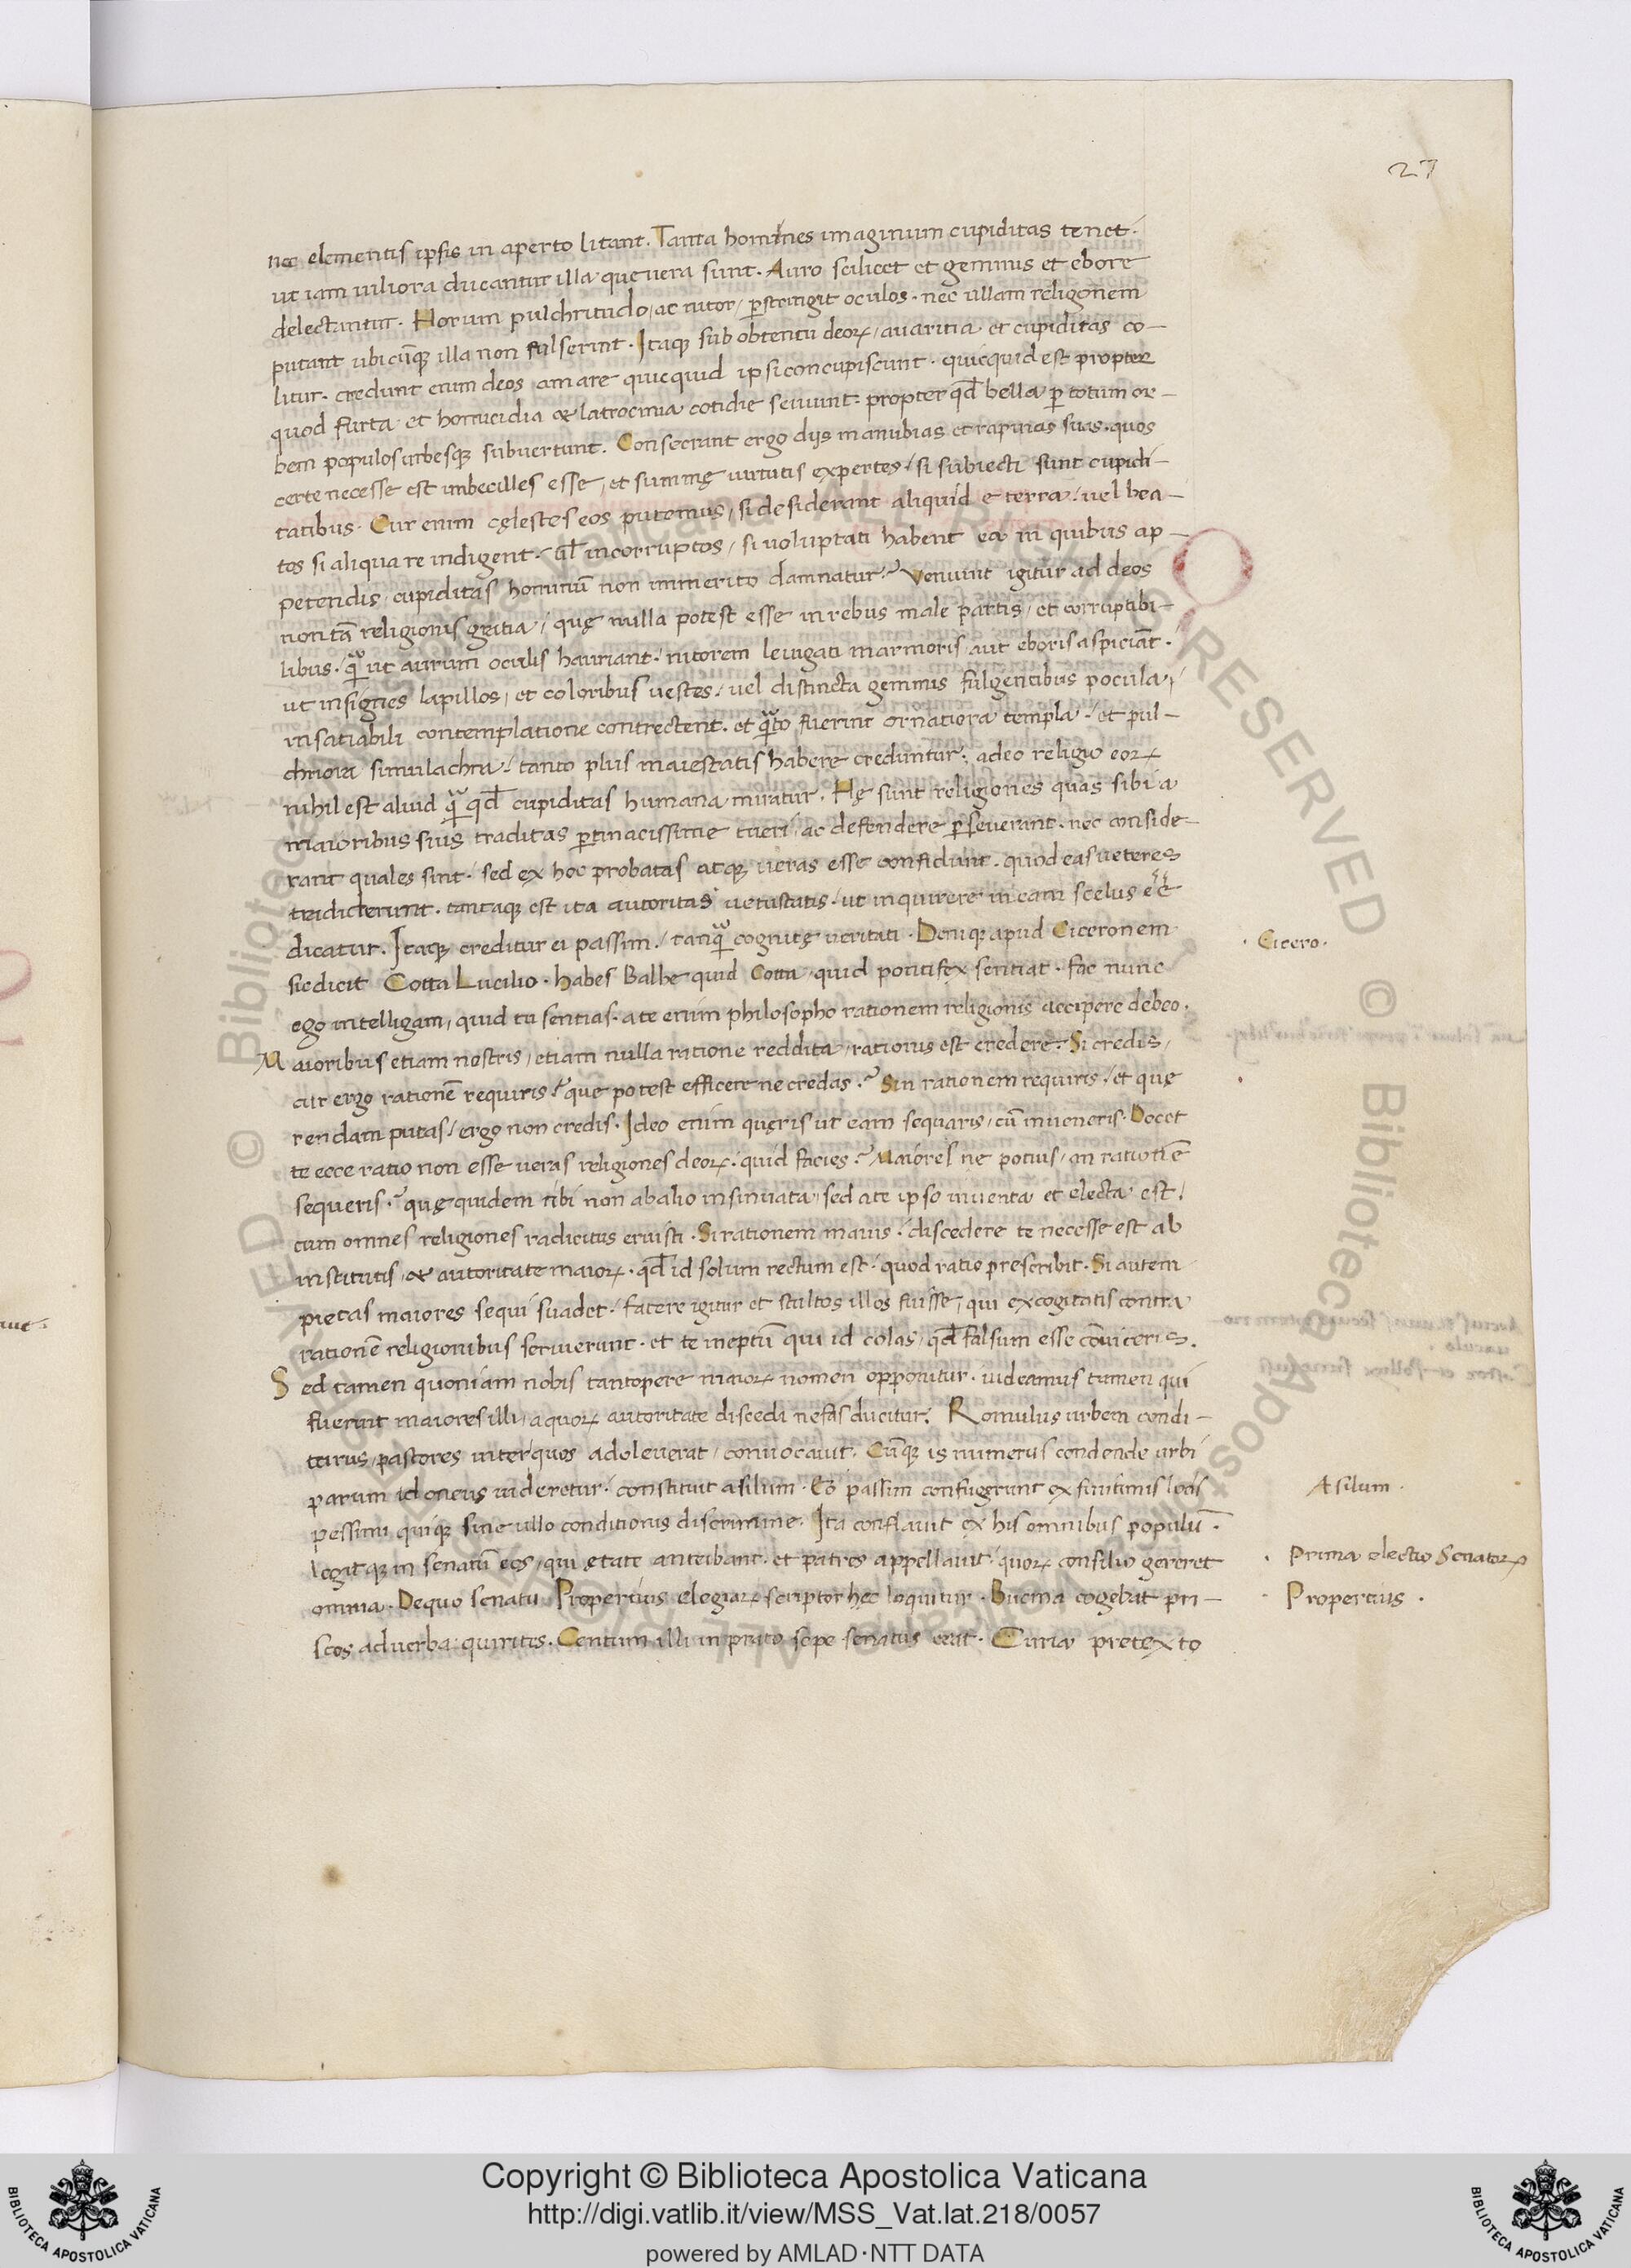 27
nec elementis ipsis in aperto litant. Tanta homines imaginum cupiditas tenet.
ut iam uiliora ducantur illa que uera sunt. Auro scilicet et gemmis et ebore
delectantur. Horum pulchritudo, ac nitor, perstringit oculos. nec ullam religionem
putant ubicūqꝫ illa non fulserint. Itaqꝫ sub obtentu deoꝝ, auaritia et cupiditas co-
litur. credunt enim deos amare quicquid ipsi concupiscunt. quicquid est propter
quod furta et homicidia & latrocinia cotidie seuiunt: propter qđ bella ꝑ totum or-
bem populos urbesqꝫ subuertunt. Consecrant ergo dijs manubias et rapinas suas. quos
certe necesse est imbecilles esse, et summę uirtutis expertes, si subiecti sunt cupidi-
tatibus. Cur enim cęlestes eos putemus, si desiderant aliquid e terra, uel bea-
tos si aliqua re indigent. uł incorruptos, si uoluptati habent ea in quibus ap-
petendis, cupiditas hominū non immerito damnatur? Veniunt igitur ad deos
non tā religionis gratia, quę nulla potest esse in rebus male partis, et corruptibi-
libus. quā ut aurum oculis hauriant. nitorem leuigati marmoris aut eboris aspiciāt.
ut insignes lapillos, et coloribus uestes, uel distincta gemmis fulgentibus pocula,
insatiabili contemplatione contrectent. et quāto fuerint ornatiora templa, et pul-
chriora simulachra, tanto plus maiestatis habere creduntur. adeo religio eoꝝ
nihil est aliud quā qđ cupiditas humana miratur. Hę sunt religiones quas sibi a
maioribus suis traditas ꝑtinacissime tueri, ac defendere ꝑseuerant. nec conside-
rant quales sint. sed ex hoc probatas atqꝫ ueras esse confidunt. quod eas ueteres
tradiderunt. tantaqꝫ est ita autoritas uetustatis, ut inquirere in eam scelus eē
dicatur. Itaqꝫ creditur ei passim, tanquā cognitę ueritati. Deniqꝫ apud Ciceronem
sic dicit Cotta Lucilio. habes Balbe quid Cotta, quid pontifex sentiat. fac nunc
ego intelligam, quid tu sentias. a te enim philosopho rationem religionis accipere debeo.
Maioribus etiam nostris, etiam nulla ratione reddita, rationis est credere. Si credis,
cur ergo rationē requiris? que potest efficere ne credas? Sin rationem requiris, et quę
rendam putas, ergo non credis. Ideo enim quęris ut eam sequaris, cū inueneris. Docet
te ecce ratio non esse ueras religiones deoꝝ. quid facies? Maiores ne potius, an rationē
sequeris? quę quidem tibi non ab alio insinuata, sed a te ipso inuenta et electa est,
cum omnes religiones radicitus eruisti. Si rationem mauis, discedere te necesse est ab
institutis, & autoritate maioꝝ. qđ id solum rectum est, quod ratio prescribit. Si autem
pietas maiores sequi suadet, fatere igitur et stultos illos fuisse, qui excogitatis contra
rationē religionibus seruierunt. et te ineptū qui id colas, qđ falsum esse cōuiceris.
Sed tamen quoniam nobis tantopere maioꝝ nomen opponitur. uideamus tamen qui
fuerint maiores illi, a quoꝝ autoritate discedi nefas ducitur. Romulus urbem condi-
turus, pastores inter quos adoleuerat, conuocauit. Cūqꝫ is numerus condende urbi
parum idoneus uideretur, constituit asilum. Eo passim confugerunt ex finitimis locis
pessimi quiqꝫ sine ullo conditionis discrimine. Ita conflauit ex his omnibus populū.
legitqꝫ in senatū eos, qui ętate anteibant. et patres appellauit, quoꝝ consilio gereret
omnia. De quo senatu Propertius elegiaꝝ scriptor hec loquitur. Bucina cogebat pri-
scos ad uerba quiritis. Centum illi in prato sepe senatus erat. Curia pretexto
. Cicero.
Asilum.
. Prima electio Senatoꝝ
. Propertius.
Copyright © Biblioteca Apostolica Vaticana
http://digi.vatlib.it/view/MSS_Vat.lat.218/0057
powered by AMLAD·NTT DATA
BIBLIOTECA APOSTOLICA VATICANA
BIBLIOTECA APOSTOLICA VATICANA